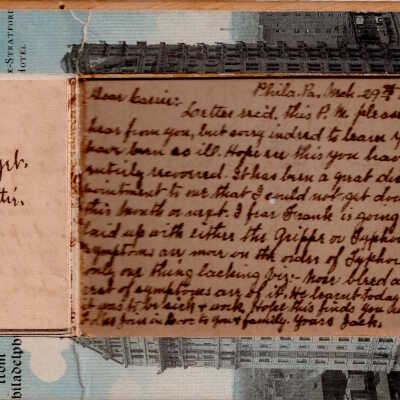 E-STRATFORD
HOTEL
Phila. Pa. Mch. 29th
Dear Carrie:-
Letter rec'd. this P.M. pleas
hear from you, but sorry indeed to learn y
have been so ill. Hope ere this you hav
entirely recovered. It has been a great dis
pointment to me that I could not get do
this month or next. I fear Frank is going
laid up with either the Grippe or Typho
symptoms are more on the order of Typho
only one thing lacking viz:- Nose bleed a
rest of symptoms are of it. He
it was to be sick & work. Hope this finds you
in love to you & family. Yours Jack.
get.
from
hiladelph